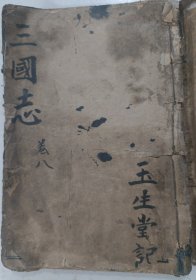 三國志
卷八
玉生堂記